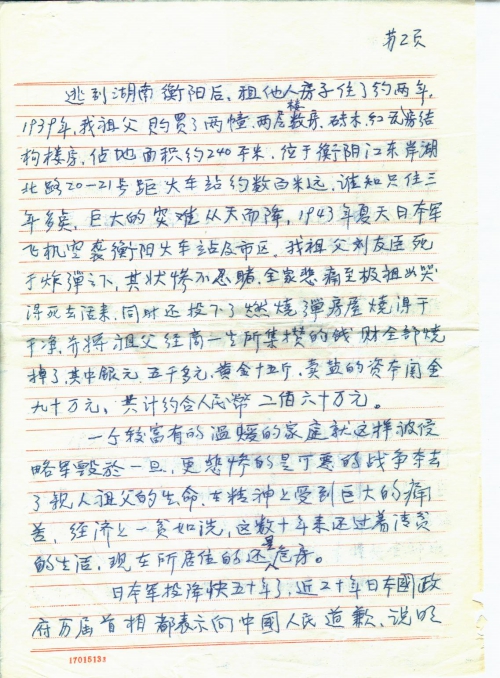 第2页
逃到湖南衡阳后、租他人房子住了约两年,
1939年,我祖父购买了两幢、两层楼数房、砖木红瓦房结
构楼房、佔地面积约240平米、位于衡阴江东岸湖
北路20-21号距火车站约数百米远、谁知只住三
年多矣,巨大的灾难从天而降,1943年夏天日本军
飞机空袭衡阳火车站及市区,我祖父刘友臣死
于炸弹之下、其状惨不忍睹、全家悲痛至极祖母哭
得死去活来,同时还投下了燃烧弹房屋烧得干
干净,并将祖父经商一生所集攒的钱财全部烧
掉了,其中银元五千多元,黄金十五斤,卖盐的资本
九十万元,共计约合人民幣二佰六十万元。
一个较富有的温暖的家庭就这样被侵
略军毁於一旦,更悲惨的是可恶的战争夺去
了親人祖父的生命,在精神上受到巨大的痛
苦、经济上一贫如洗,这数十年来还过着清贫
的生活,现在所居住的还是危房。
日本军投降快五十年了,近二十年日本國政
府历届首相都表示向中國人民道歉、说明
1701513